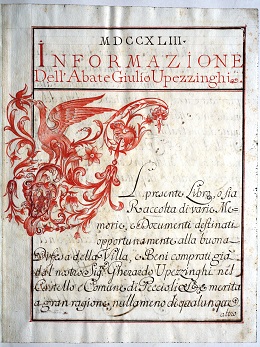 MDCCXLIII.
INFORMAZIONE
Dell'Abate Giulio Upezzinghi.
IL presente Libro, o sia
Raccolta di varie Me=
morie, e Documenti destinati
opportunamente alla buona
Difesa della Villa, e Beni comprati già
dal nostro Sigr. Gherardo Upezzinghi nel
Castello e Comune di Peccioli merita
a gran ragione, nulla meno di qualunque
altro